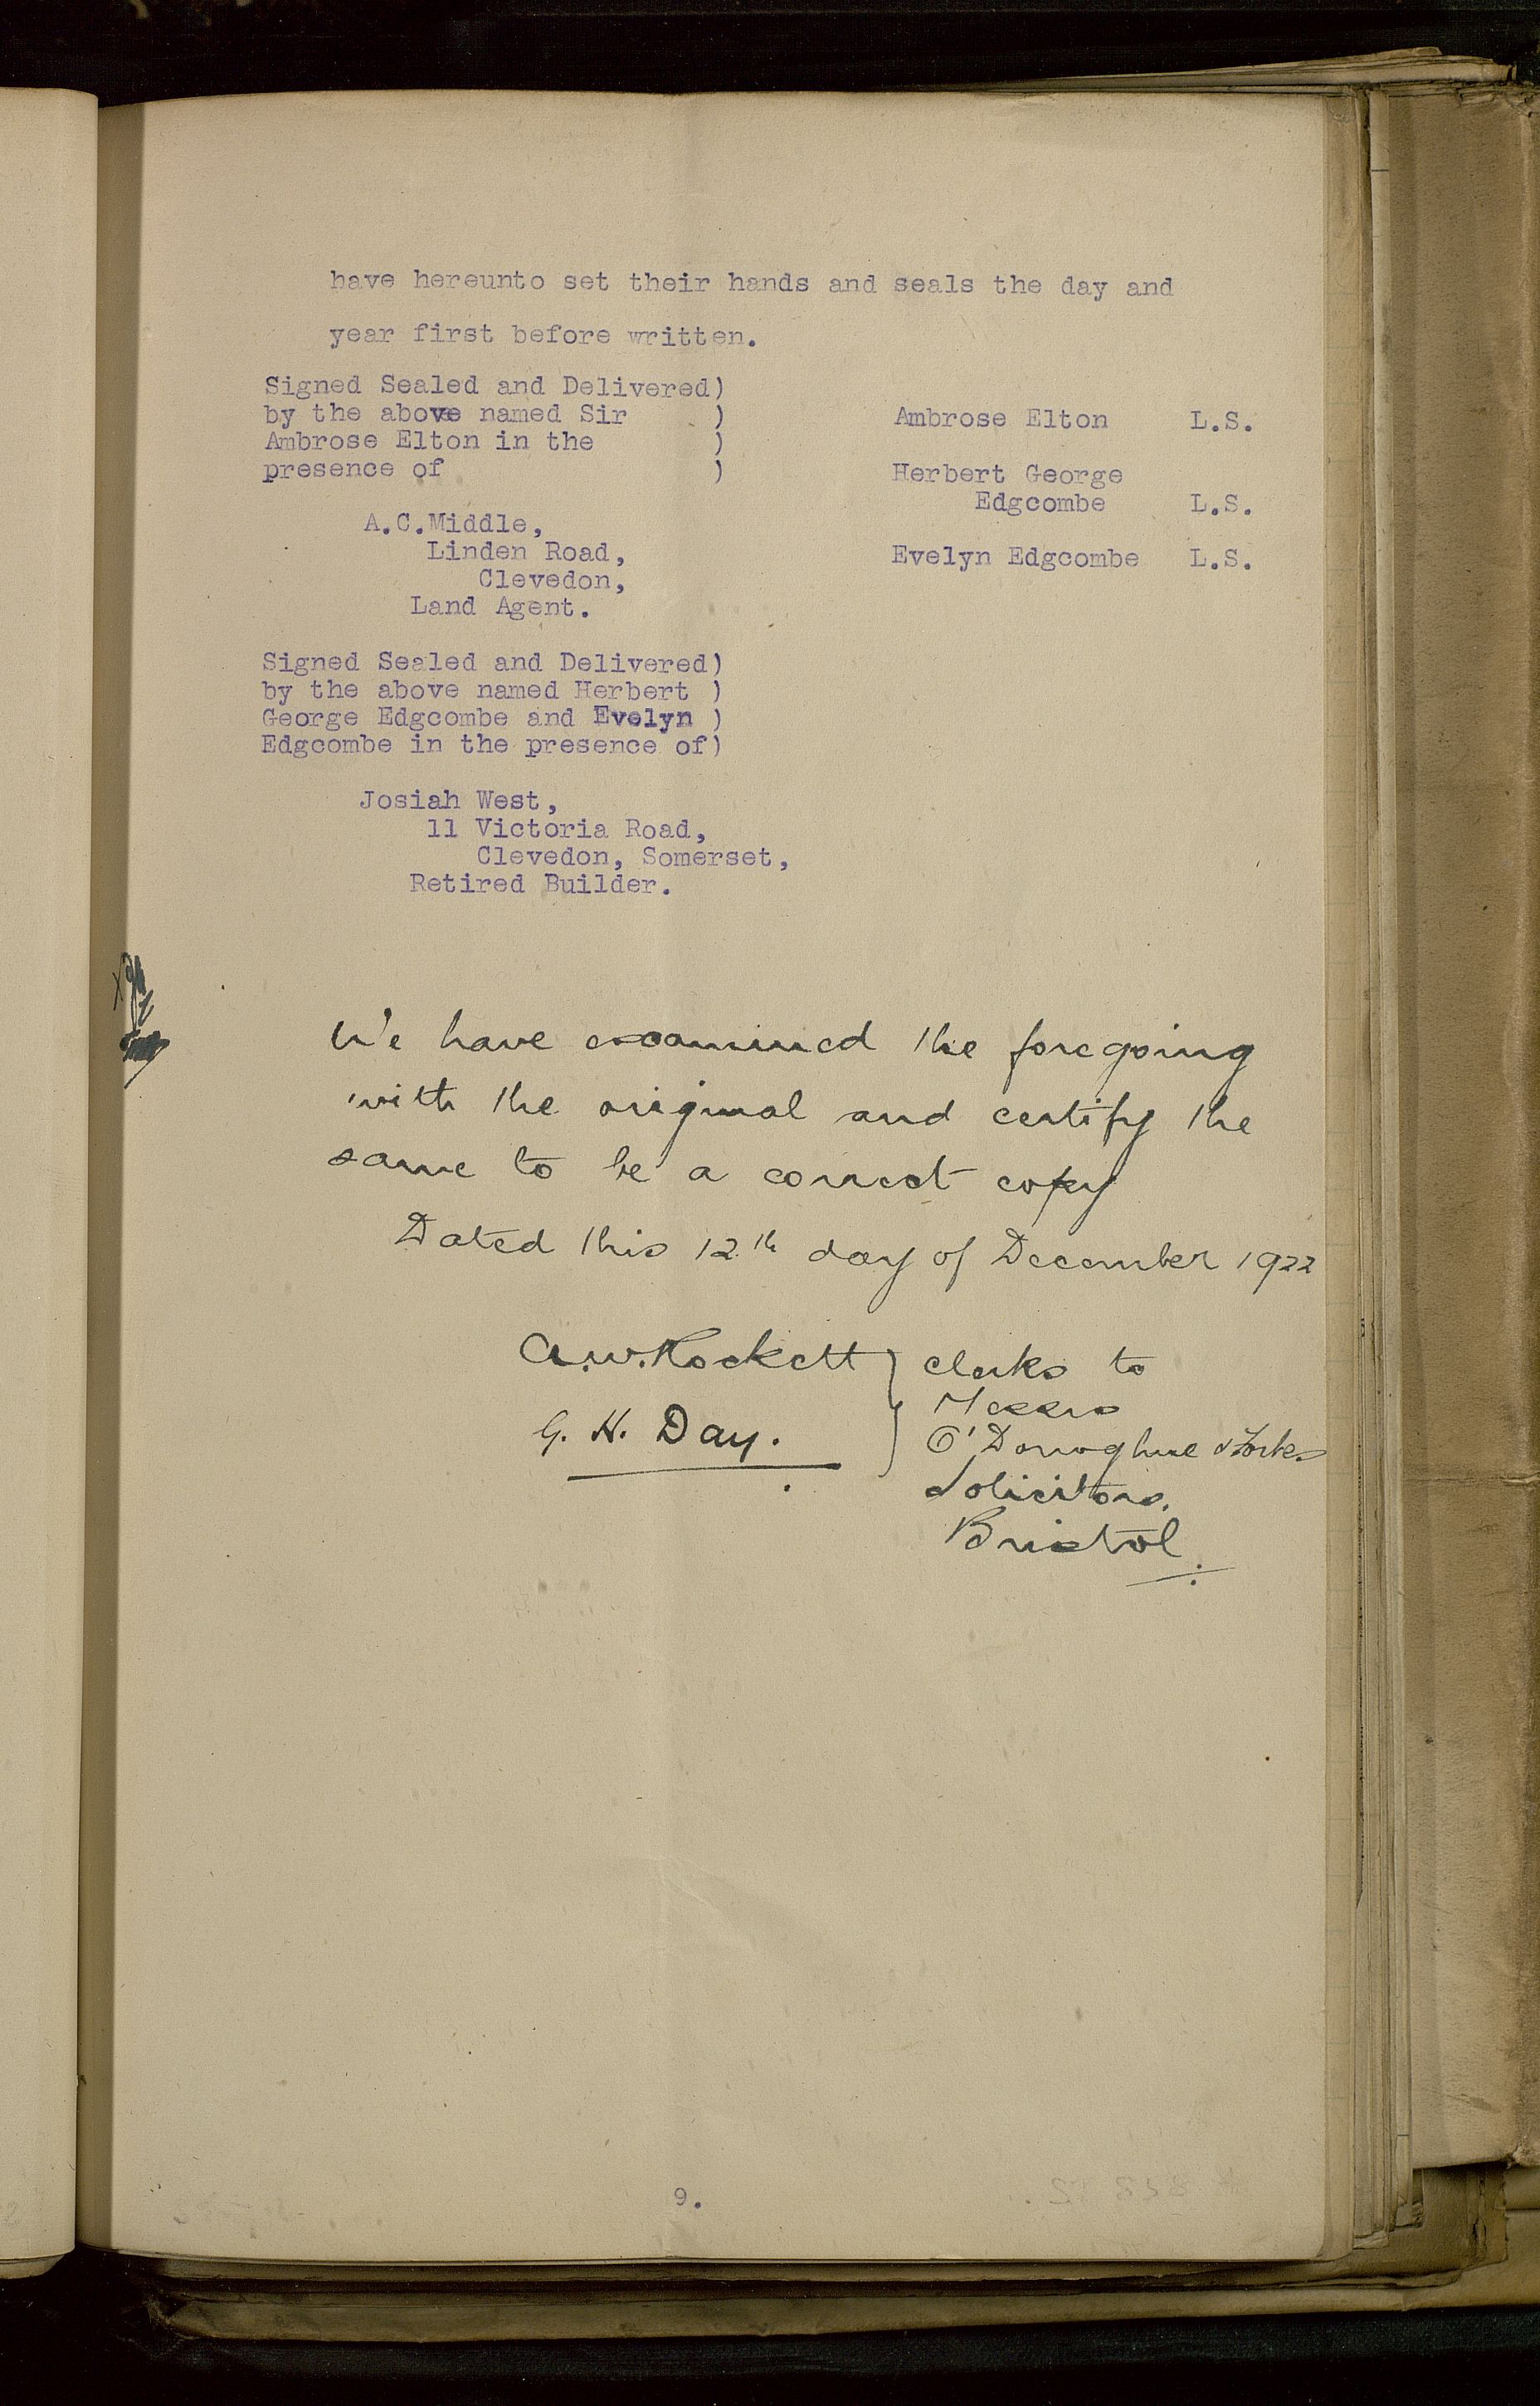 have hereunto set their hands and seals the day and
year first before written.
Signed Sealed and Delivered)
by the above named Sir )
Ambrose Elton in the )
presence of )
A.C.Middle,
Linden Road,
Clevedon,
Land Agent.
Ambrose Elton L.S.
Herbert George
Edgcombe L.S.
Evelyn Edgcombe L.S.
Signed Sealed and Delivered)
by the above named Herbert )
George Edgcombe and Evelyn )
Edgcombe in the presence of)
Josiah West,
11 Victoria Road,
Clevedon, Somerset,
Retired Builder.
We have examined the foregoing
with the original and certify the
same to be a correct copy
Dated this 12th day of December 1922
A.W.
G. H. Day.
clerks to
Messrs
O'Donoghue &
Solicitors,
Bristol.
9.